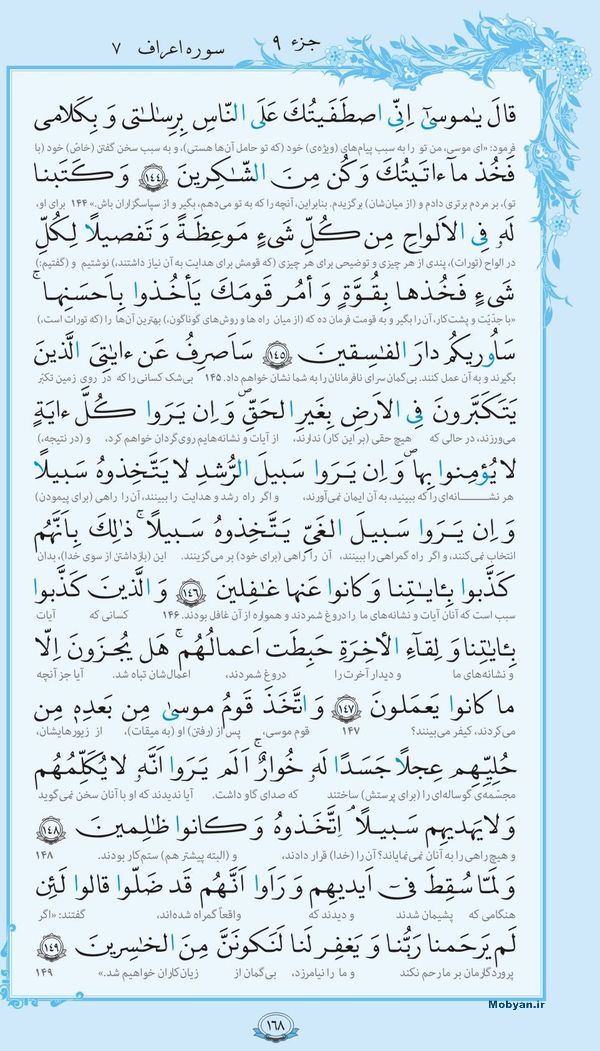 جزء ۹
سوره اعراف ۷
قالَ یٰموسیٰٓ اِنِّی اصطَفَیتُکَ عَلَی النّاسِ بِرِسالٰتی وَ بِکَلامی
فرمود: «ای موسی، من تو را به سبب پیام‌های (ویژه‌ی) خود (که تو حامل آن‌ها هستی)، و به سبب سخن گفتن (خاصّ) خود (با
فَخُذ مآ ءاتَیتُکَ وَ کُن مِنَ الشّاکِرینَ ﴿۱۴۴﴾ وَ کَتَبنا
تو)، بر مردم برتری دادم و (از میان‌شان) برگزیدم. بنابراین، آنچه را که به تو می‌دهم، بگیر و از سپاسگزاران باش.» ۱۴۴ برای او،
لَهٗ فِی الاَلواحِ مِن کُلِّ شَیءٍ مَوعِظَةً وَ تَفصیلًا لِکُلِّ
در الواح (تورات)، پندی از هر چیزی و توضیحی برای هر چیزی (که قومش برای هدایت به آن نیاز داشتند،) نوشتیم و (گفتیم:)
شَیءٍ فَخُذها بِقُوَّةٍ وَ أمُر قَومَکَ یَأخُذوا بِاَحسَنِهاۚ
«با جدّیّت و پشت‌کار، آن را بگیر و به قومت فرمان ده که (از میان راه ها و روش‌های گوناگون،) بهترین آن‌ها را (که تورات است،)
سَاُوریکُم دارَ الفٰسِقینَ ﴿۱۴۵﴾ سَاَصرِفُ عَن ءایٰتِیَ الَّذینَ
بگیرند و به آن عمل کنند. بی‌گمان سرای نافرمانان را به شما نشان خواهم داد. ۱۴۵ بی‌شک کسانی را که در روی زمین تکبّر
یَتَکَبَّرونَ فِی الاَرضِ بِغَیرِ الحَقِّۖ وَ اِن یَرَوا کُلَّ ءایَةٍ
می‌ورزند، در حالی که هیچ حقی (بر این کار) ندارند، از آیات و نشانه‌هایم روی‌گردان خواهم کرد، و (در نتیجه،)
لا یُؤمِنوا بِهاۖ وَ اِن یَرَوا سَبیلَ الرُّشدِ لا یَتَّخِذوهُ سَبیلًا
هر نشـــانه‌ای را که ببینید، به آن ایمان نمی‌آورند، و اگر راه رشد و هدایت را ببینند، آن را راهی (برای پیمودن)
وَ اِن یَرَوا سَبیلَ الغَیِّ یَتَّخِذوهُ سَبیلًاۚ ذٰلِکَ بِاَنَّهُم
انتخاب نمی‌کنند، و اگر راه گمراهی را ببینند، آن را راهی (برای خود) بر می‌گزینند. این (بازداشتن از سوی خدا)، بدان
کَذَّبوا بِـٔایٰتِنا وَ کانوا عَنها غٰفِلینَ ﴿۱۴۶﴾ وَ الَّذینَ کَذَّبوا
سبب است که آنان آیات و نشانه‌های ما را دروغ شمردند و همواره از آن غافل بودند. ۱۴۶ کسانی که آیات
بِـٔایٰتِنا وَ لِقآءِ الـٔاخِرَةِ حَبِطَت اَعمالُهُمۚ هَل یُجزَونَ اِلّا
و نشانه‌های ما و دیدار آخرت را دروغ شمردند، اعمال‌شان تباه شد. آیا جز آنچه
ما کانوا یَعمَلونَ ﴿۱۴۷﴾ وَ اتَّخَذَ قَومُ موسیٰ مِن بَعدِهٖ مِن
می‌کردند، کیفر می‌بینند؟ ۱۴۷ قوم موسی، پس از (رفتن) او (به میقات)، از زیورهایشان،
حُلِیِّهِم عِجلًا جَسَدًا لَهٗ خُوارٌۚ اَلَم یَرَوا اَنَّهٗ لا یُکَلِّمُهُم
مجسّمه‌ی گوساله‌ای را (برای پرستش) ساختند که صدای گاو داشت. آیا ندیدند که او با آنان سخن نمی‌گوید
وَ لا یَهدیهِم سَبیلًاۘ اتَّخَذوهُ وَ کانوا ظٰلِمینَ ﴿۱۴۸﴾
و هیچ راهی را به آنان نمی‌نمایاند؟ آن را (خدا) قرار دادند، و (البته پیشتر هم) ستم‌کار بودند. ۱۴۸
وَ لَمّا سُقِطَ فیٓ اَیدیهِم وَ رَاَوا اَنَّهُم قَد ضَلّوا قالوا لَئِن
هنگامی که پشیمان شدند و دیدند که واقعاً گمراه شده‌اند، گفتند: «اگر
لَم یَرحَمنا رَبُّنا وَ یَغفِر لَنا لَنَکونَنَّ مِنَ الخٰسِرینَ ﴿۱۴۹﴾
پروردگارمان بر ما رحم نکند و ما را نیامرزد، بی‌گمان از زیان‌کاران خواهیم شد.» ۱۴۹
Mobyan.ir
۱۶۸